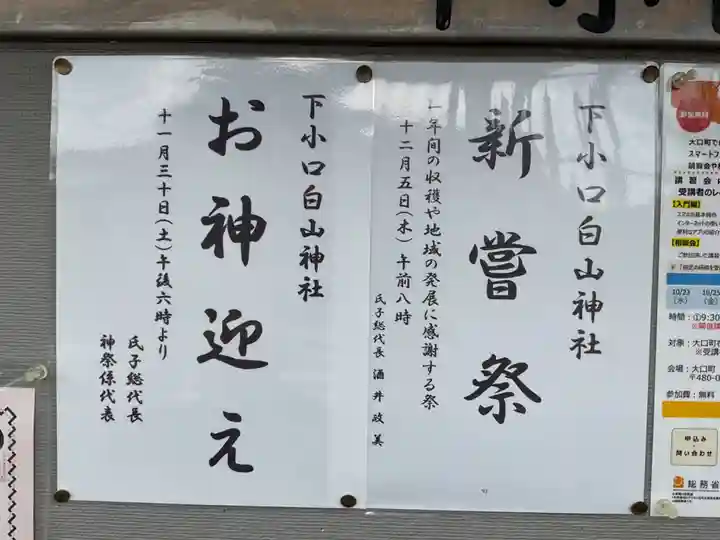 下小口白山神社
新嘗祭
一年間の収穫や地域の発展に感謝する祭
十二月五日(木)午前八時
氏子総代長 酒井政美
下小口白山神社
お神迎え
十一月三十日(土)午後六時より
氏子総代長
神祭係代表
参加無料
大口町で
スマートフ
講習会や
講習会
受講者のレ
【入門編】
【相談会】
10/23
(水)
10/25
(金)
時間:①9:30
※開催
対象:大口町
※受講
会場:大口町
〒480-0
参加費:無料
申込み
問い合わせ
総務省